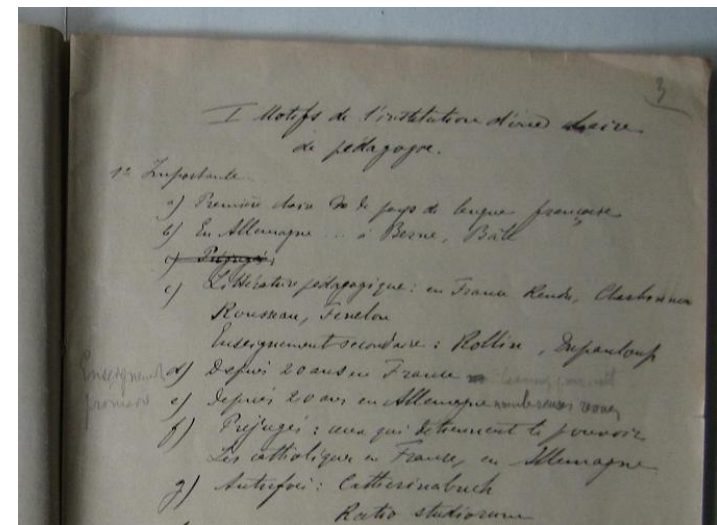 3
I Motifs de l'institution d'une chaire
de pédagogie.
1º Importante
a) Première chaire de pays de langue française
b) En Allemagne ... à Berne, Bâle
c) Préjugés
c) Littérature pédagogique : en France Rendu, Charbonneau
Rousseau, Fenelon
Enseignement secondaire : Rollin, Dupanloup
Enseignement
primaire
d) Depuis 20 ans en France
e) Depuis 20 ans en Allemagne nombreuses
f) Préjugés : ceux qui détiennent le pouvoir
Les catholiques en France, en Allemagne
g) Autrefois : Catherinabuch
Ratio studiorum